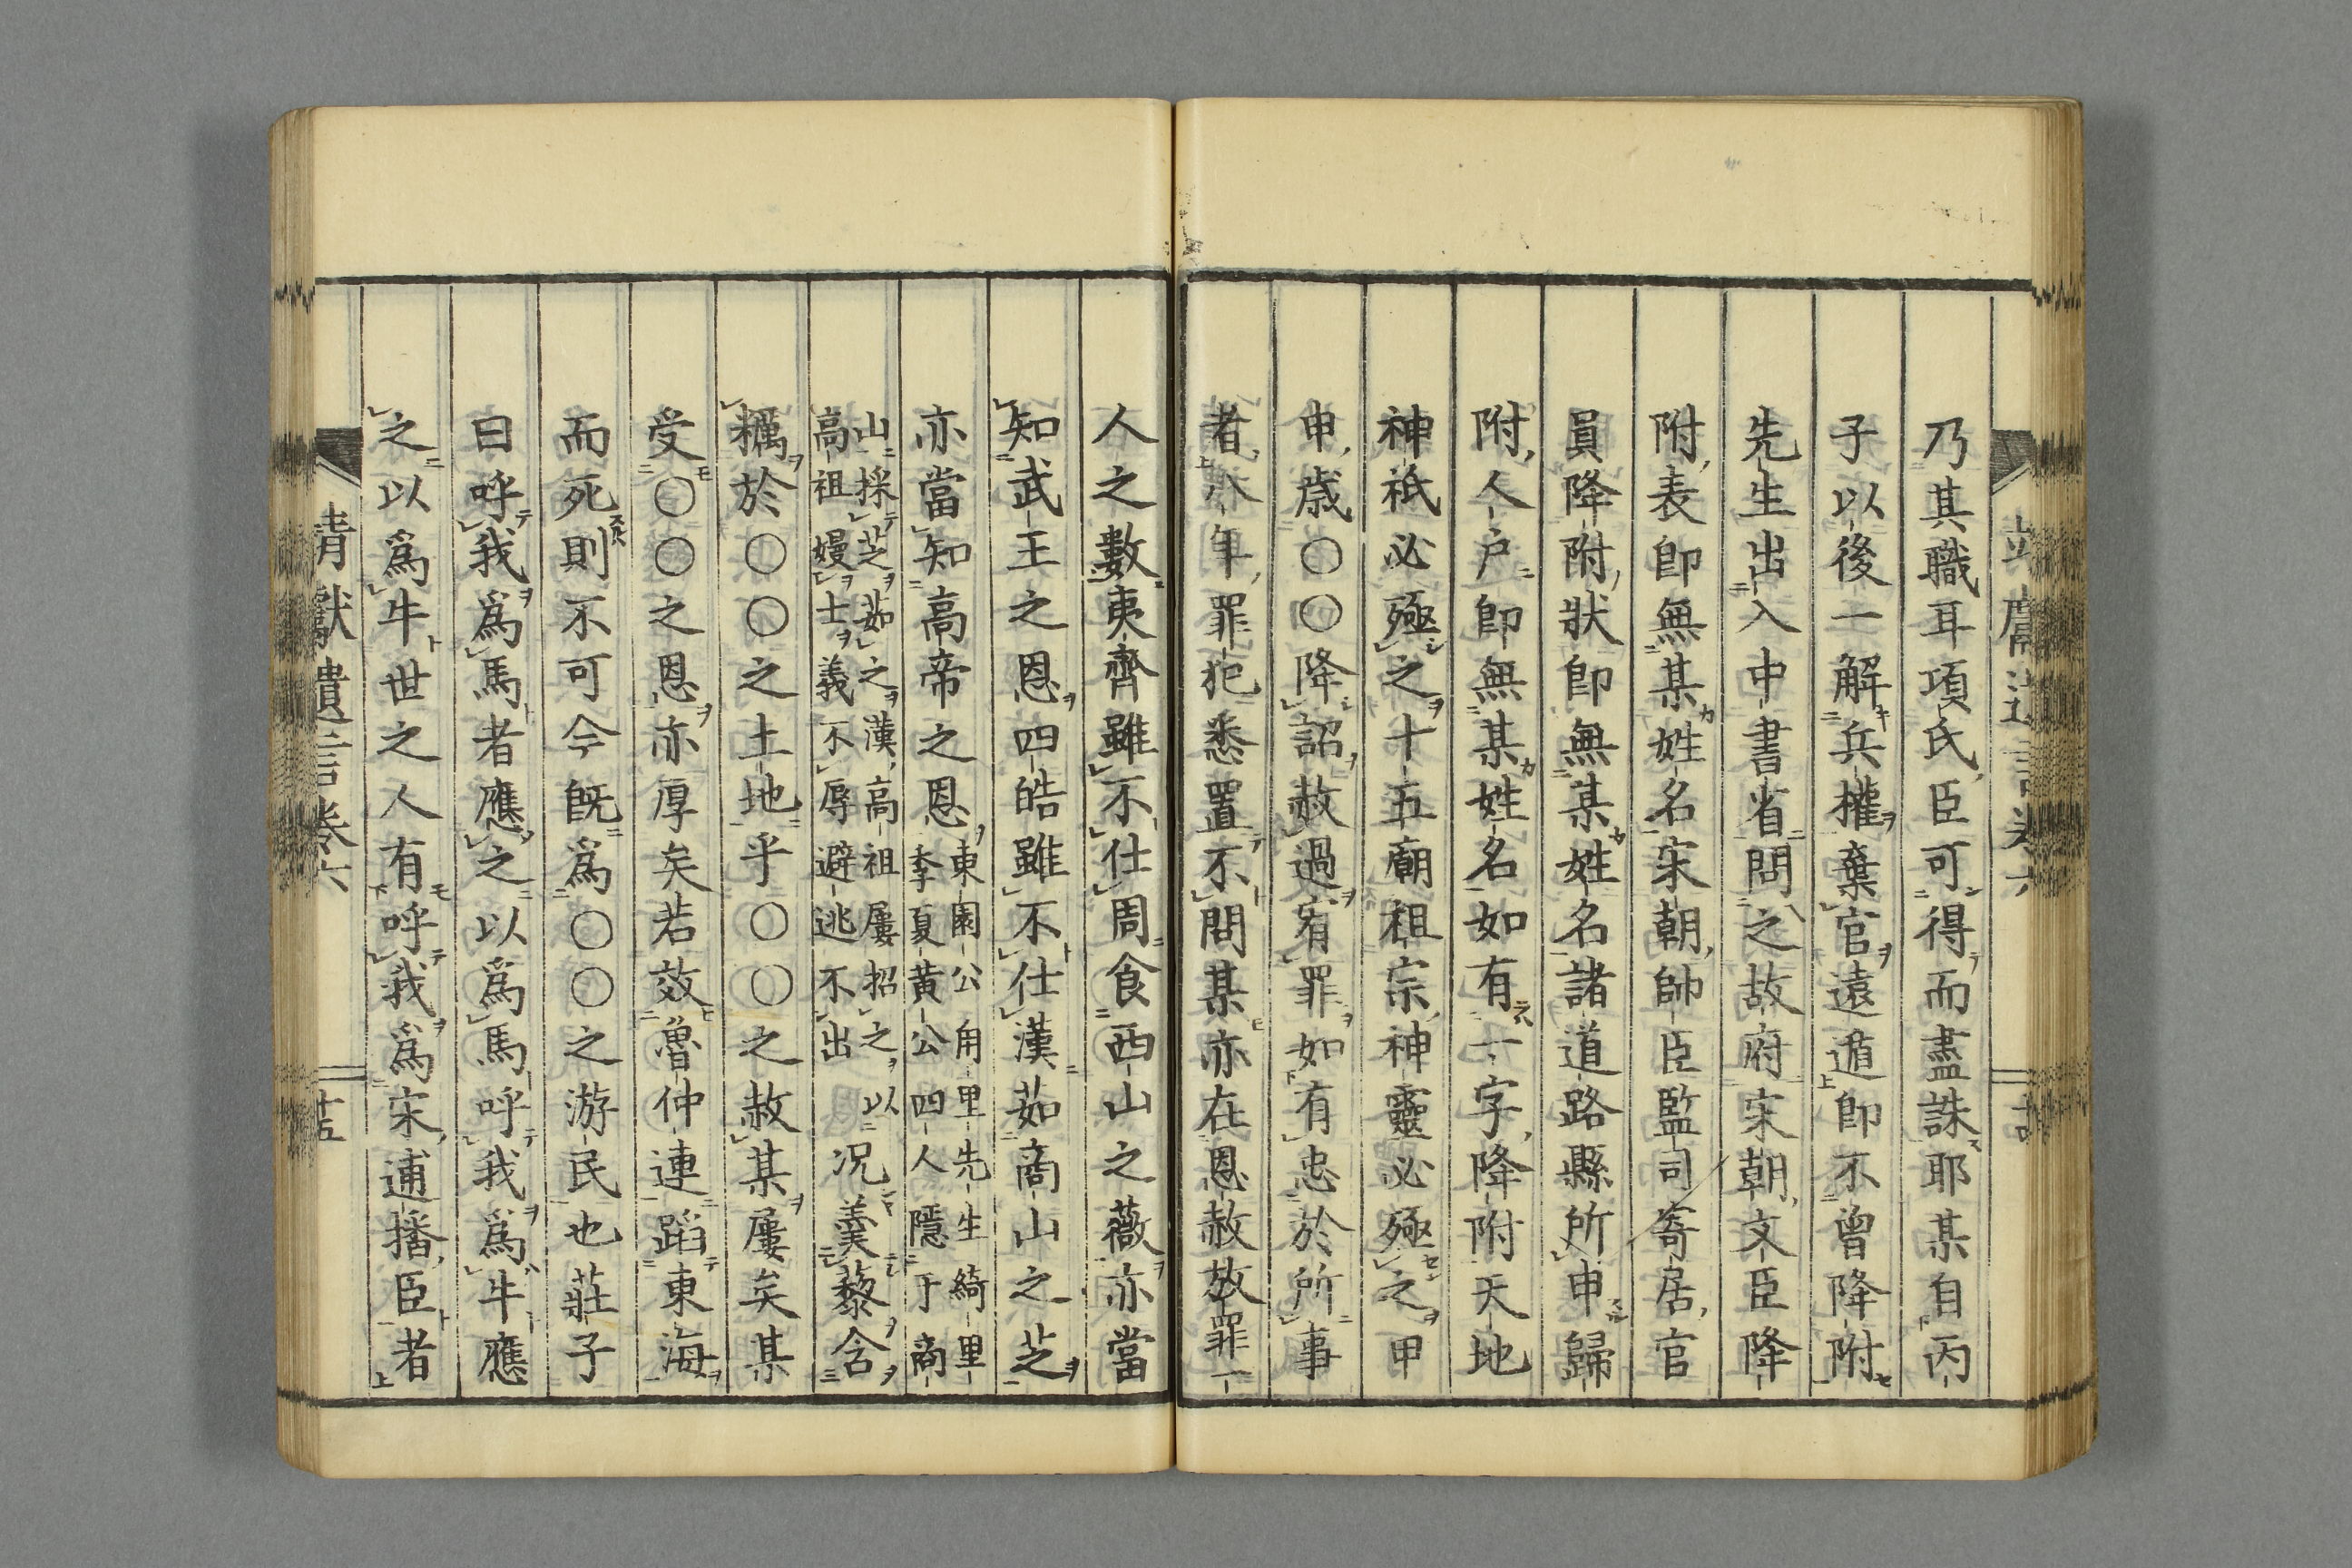 乃其職耳項氏臣可得而盡誅耶某自丙
子以後一解兵權棄官遠遁即不曾降附
先生出入中書省問之故府宋朝文臣降
附表即無某姓名宋朝帥臣監司寄居官
員降附狀即無某姓名諸道路縣所申歸
附人户即無某姓名如有一字降附天地
神祇必殛之十五廟祖宗神靈必殛之甲
申歳○○降詔赦過宥罪如有忠於所事
者八年罪犯悉置不問某亦在恩赦放罪一
人之數夷齊雖不仕周食西山之薇亦當
知武王之恩四皓雖不仕漢茹商山之芝
亦當知高帝之恩
東園公角里先生綺里
季夏黄公四人隱于商
山採芝茹之漢高祖屢招之以
高祖嫚士義不辱避逃不出
况羹藜含
糲於○○之土地乎○○之赦某屢矣某
受○○之恩亦厚矣若效魯仲連蹈東海
而死則不可今既爲○○之游民也莊子
曰呼我爲馬者應之以爲馬呼我爲牛應
之以爲牛世之人有呼我爲宋逋播臣者
靖獻遺言卷六
十五